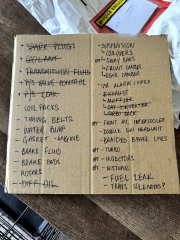 - SPARK PLUGS
- COOLANT
- TRANSMISSION FLUID
- P/S LEAK
- COIL PACKS
- TIMING BELTS
- WATER PUMP
- GASKET - ENGINE
- BRAKE FLUID
- BRAKE PADS
- ROTORS
- DIFF OIL
- SUSPENSION
- COILOVERS
- SWAY BARS
- FRONT CAMBER
- REAR CAMBER
- EXHAUST
- MUFFLER
- CAT CONVERTER
- FRONT INTERCOOLER
- DOUBLE DIN HEADUNIT
- BRAIDED BRAKE LINES
- TURBO
- INJECTORS
- FUEL LEAK
- TRANS SOLENOIDS?